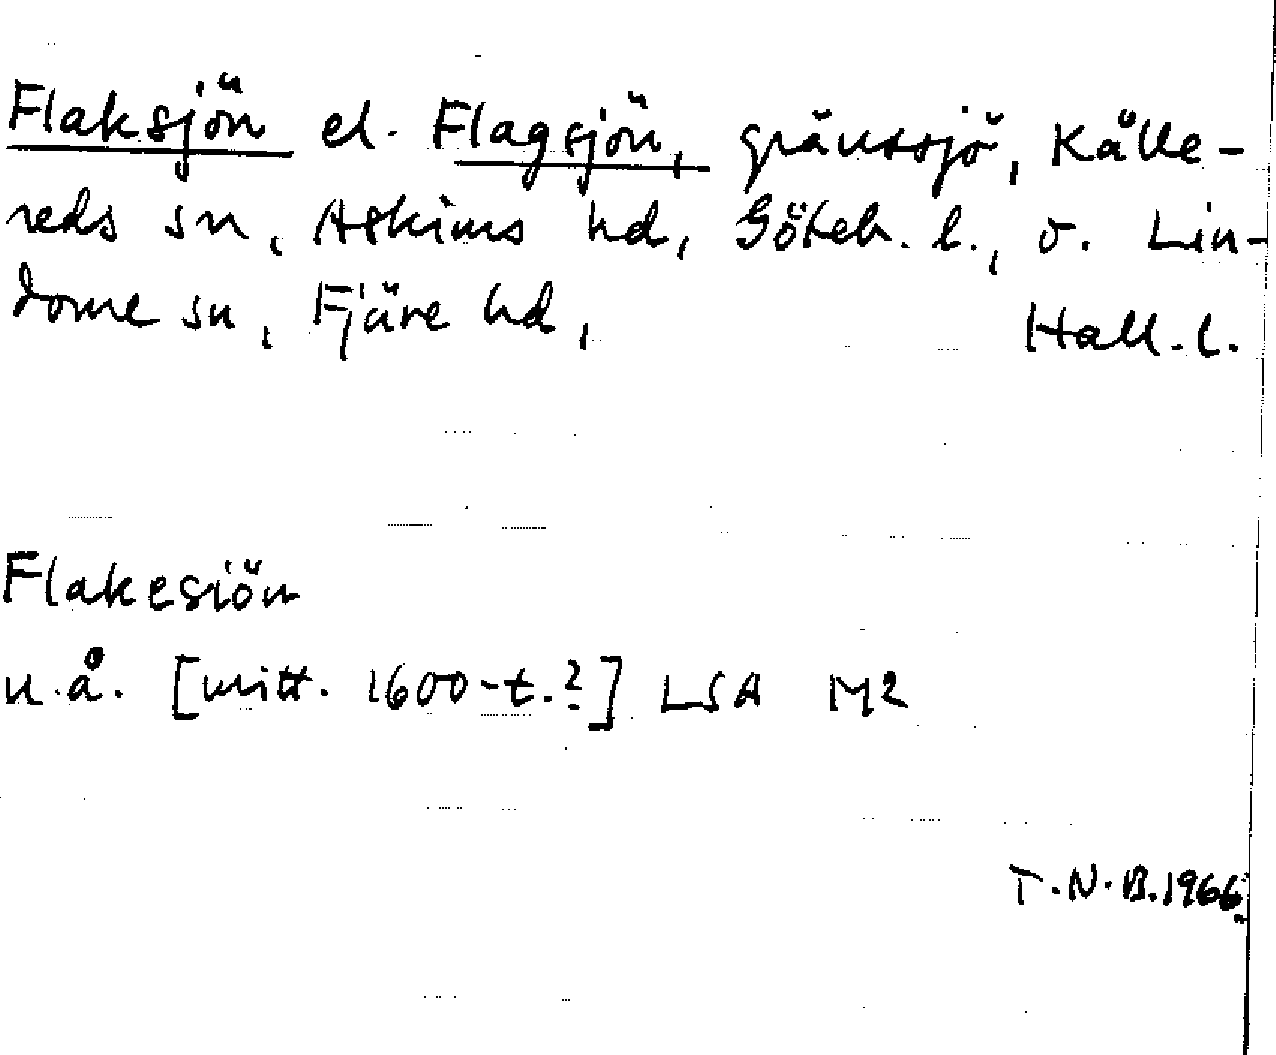 Flaksjön el. Flagsjön, gränssjö, Kålle-
reds sn, Askims hd, Göteb. l., o. Lin-
dome sn, Fjäre hd, Hall. l.
Flakesiön
u.å. [mitt. 1600-t.?] LSA M2
T.N.B. 1966